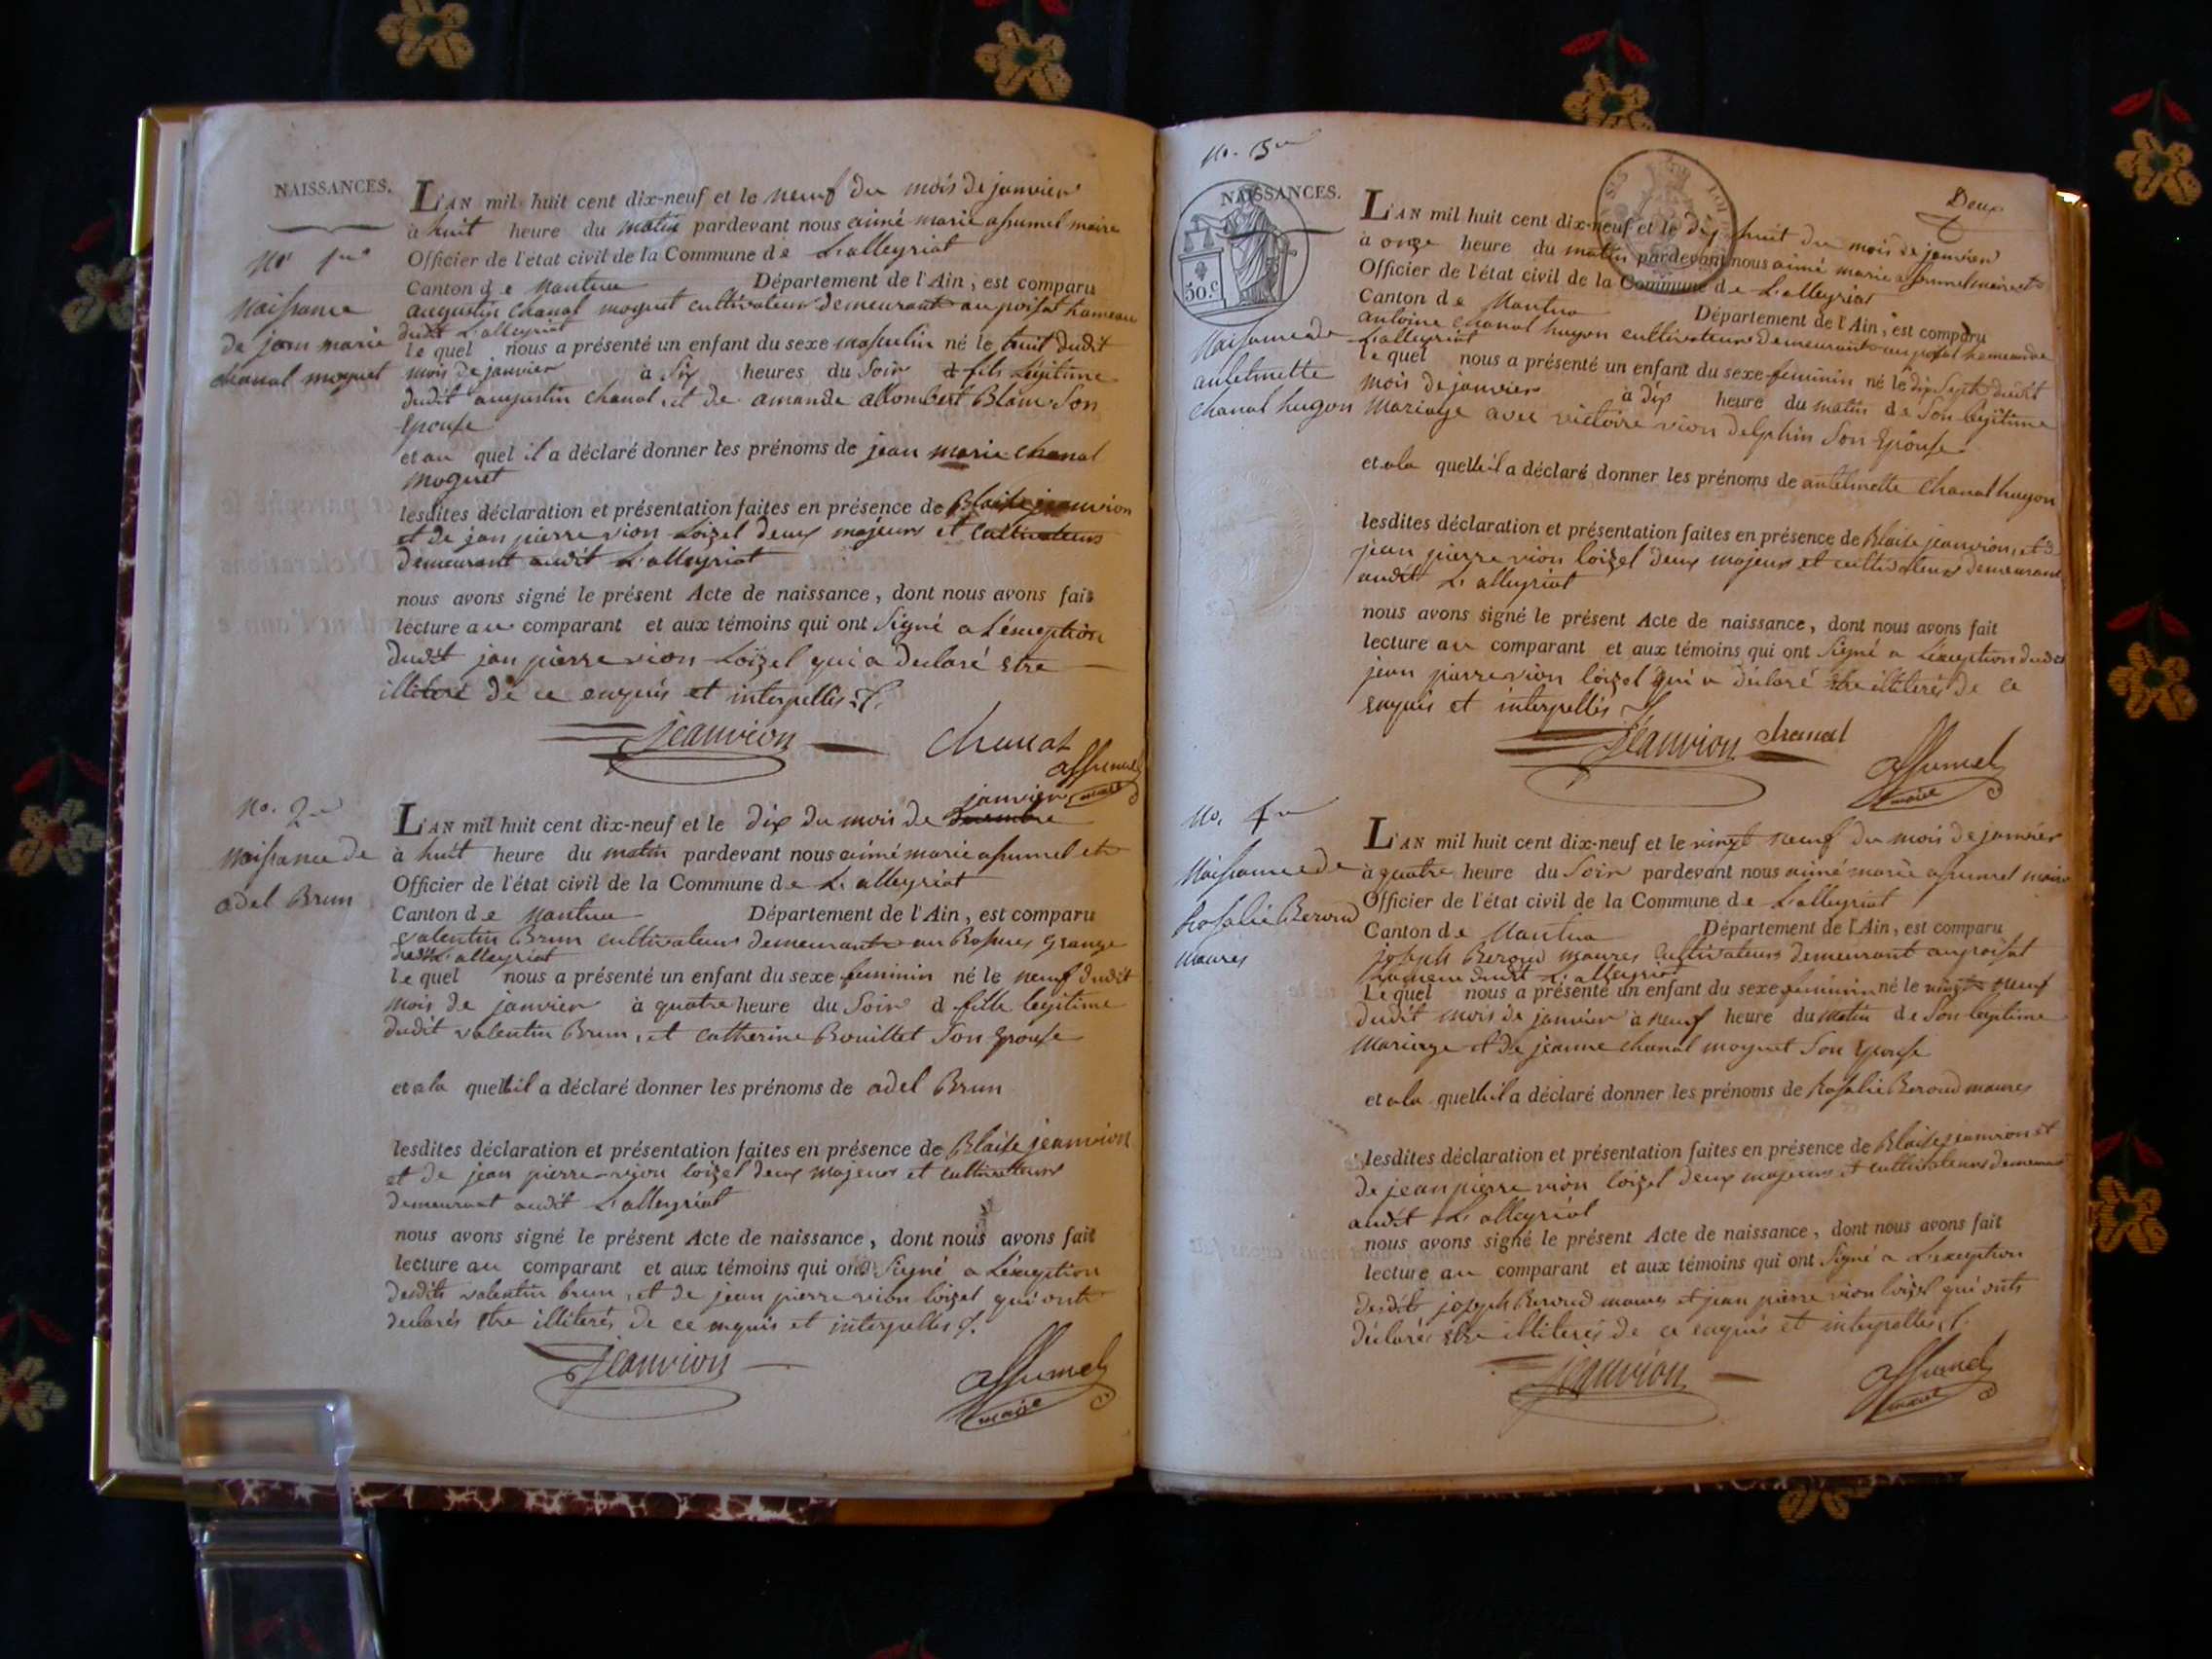 NAISSANCES.
L'AN mil huit cent dix-neuf et le neuf du mois de janvier
à huit heure du matin pardevant nous aimé marie assumel maire
Officier de l'état civil de la Commune de L'alleyriat
Canton de Nantua Département de l'Ain, est comparu
augustin chanal moguet cultivateur demeurant au poisat hameau
dudit L'alleyriat
le quel nous a présenté un enfant du sexe masculin né le huit dudit
mois de janvier à Six heures du Soir fils légitime
dudit augustin chanal, et de amande allombert Blaise Son
Epouse
et au quel il a déclaré donner les prénoms de jean marie chanal
moguet
lesdites déclaration et présentation faites en présence de Blaise jeanvion
et de jan pierre vion Loizel deux majeurs et cultivateurs
demeurant audit L'alleyriat
nous avons signé le présent Acte de naissance, dont nous avons fait
lecture au comparant et aux témoins qui ont Signé a L'éxception
dudit jan pierre vion Loizel qui a déclaré etre
illiteré de ce enquis et interpellés
jeanvion chanal
assumel
maire
Naissance
de jean marie
chanal moguet
No. 2
Naissance de
adel Brun
L'AN mil huit cent dix-neuf et le dix du mois de janvier
à huit heure du matin pardevant nous aimé marie assumel et
Officier de l'état civil de la Commune de L'alleyriat
Canton de Nantua Département de l'Ain, est comparu
valentin Brun cultivateur demeurant au grange
dudit L'alleyriat
le quel nous a présenté un enfant du sexe feminin né le neuf dudit
mois de janvier à quatre heure du Soir fille legitime
dudit valentin Brun, et catherine Bouillet Son Epouse
et a la quelle il a déclaré donner les prénoms de adel Brun
lesdites déclaration et présentation faites en présence de Blaise jeanvion
et de jean pierre vion loizel deux majeurs et cultivateurs
demeurant audit L'alleyriat
nous avons signé le présent Acte de naissance, dont nous avons fait
lecture au comparant et aux témoins qui ont Signé a L'éxception
desdits valentin brun, et de jean pierre vion loizel qui ont
declarés etre illiterés de ce enquis et interpellés
jeanvion
assumel
maire
No. 3
NAISSANCES.
50.c
Deux
Naissance de
antelmette
chanal hugon
L'AN mil huit cent dix-neuf et le dix huit du mois de janvier
à onze heure du matin pardevant nous aimé marie assumel maire et
Officier de l'état civil de la Commune de L'alleyriat
Canton de Nantua Département de l'Ain, est comparu
antoine chanal hugon cultivateur demeurant au poisat hameau de
L'alleyriat
le quel nous a présenté un enfant du sexe feminin né le dix Sept dudit
mois de janvier à dix heure du matin de Son legitime
Mariage avec victoire vion delphin Son Epouse
et a la quelle il a déclaré donner les prénoms de antelmette chanal hugon
lesdites déclaration et présentation faites en présence de Blaise jeanvion, et de
jean pierre vion loizel deux majeurs et cultivateurs demeurant
audit L'alleyriat
nous avons signé le présent Acte de naissance, dont nous avons fait
lecture au comparant et aux témoins qui ont Signé a L'éxception dudit
jean pierre vion loizel qui a déclaré etre illiterés de ce
enquis et interpellés
jeanvion chanal
assumel
maire
No. 4
Naissance de
Rosalie Beroud
maures
L'AN mil huit cent dix-neuf et le vingt neuf du mois de janvier
à quatre heure du Soir pardevant nous aimé marie assumel maire
Officier de l'état civil de la Commune de L'alleyriat
Canton de Nantua Département de l'Ain, est comparu
joseph Beroud maures cultivateur demeurant au poisat
hameau dudit L'alleyriat
Le quel nous a présenté un enfant du sexe feminin né le vingt neuf
dudit mois de janvier à neuf heure du matin de Son legitime
Mariage et de jeanne chanal moguet Son Epouse
et a la quelle il a déclaré donner les prénoms de Rosalie Beroud maures
lesdites déclaration et présentation faites en présence de Blaise jeanvion et
de jean pierre vion loizel deux majeurs et cultivateurs demeurant
audit L'alleyriat
nous avons signé le présent Acte de naissance, dont nous avons fait
lecture au comparant et aux témoins qui ont Signé a L'exception
desdits joseph Beroud maures et jean pierre vion loizel qui onts
déclarés etre illiterés de ce enquis et interpellés
jeanvion
assumel
maire